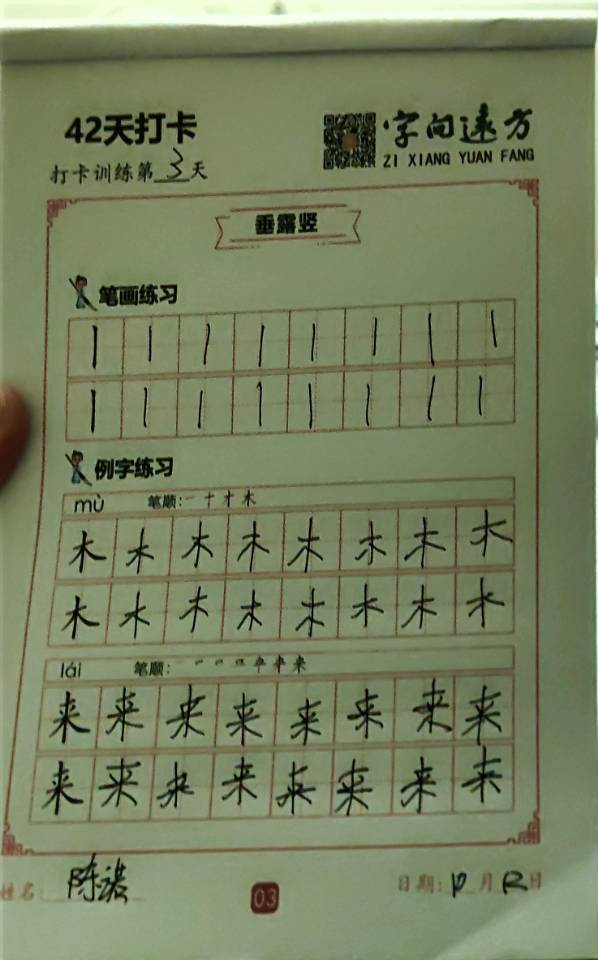 42天打卡
字向远方
ZI XIANG YUAN FANG
打卡训练第3天
垂露竖
笔画练习
丨丨丨丨丨丨丨丨
丨丨丨丨丨丨丨丨
例字练习
mù 笔顺: 一 十 才 木
木木木木木木木木
木木木木木木木木
lái 笔顺:
来来来来来来来来
来来来来来来来来
姓名: 陈
03
日期: 月 日